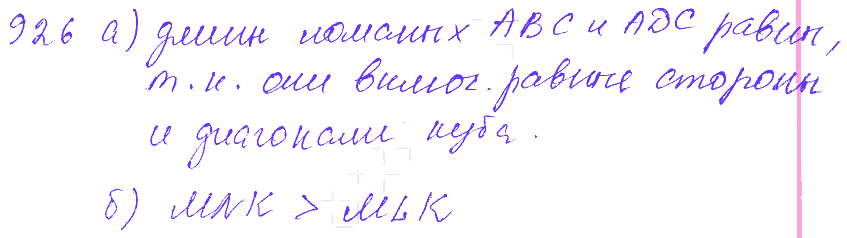 926 а) длин ломаных ABC и ADC равны,
т.к. они включ. равные стороны
и диагонали куба.
б) MNK > MLK